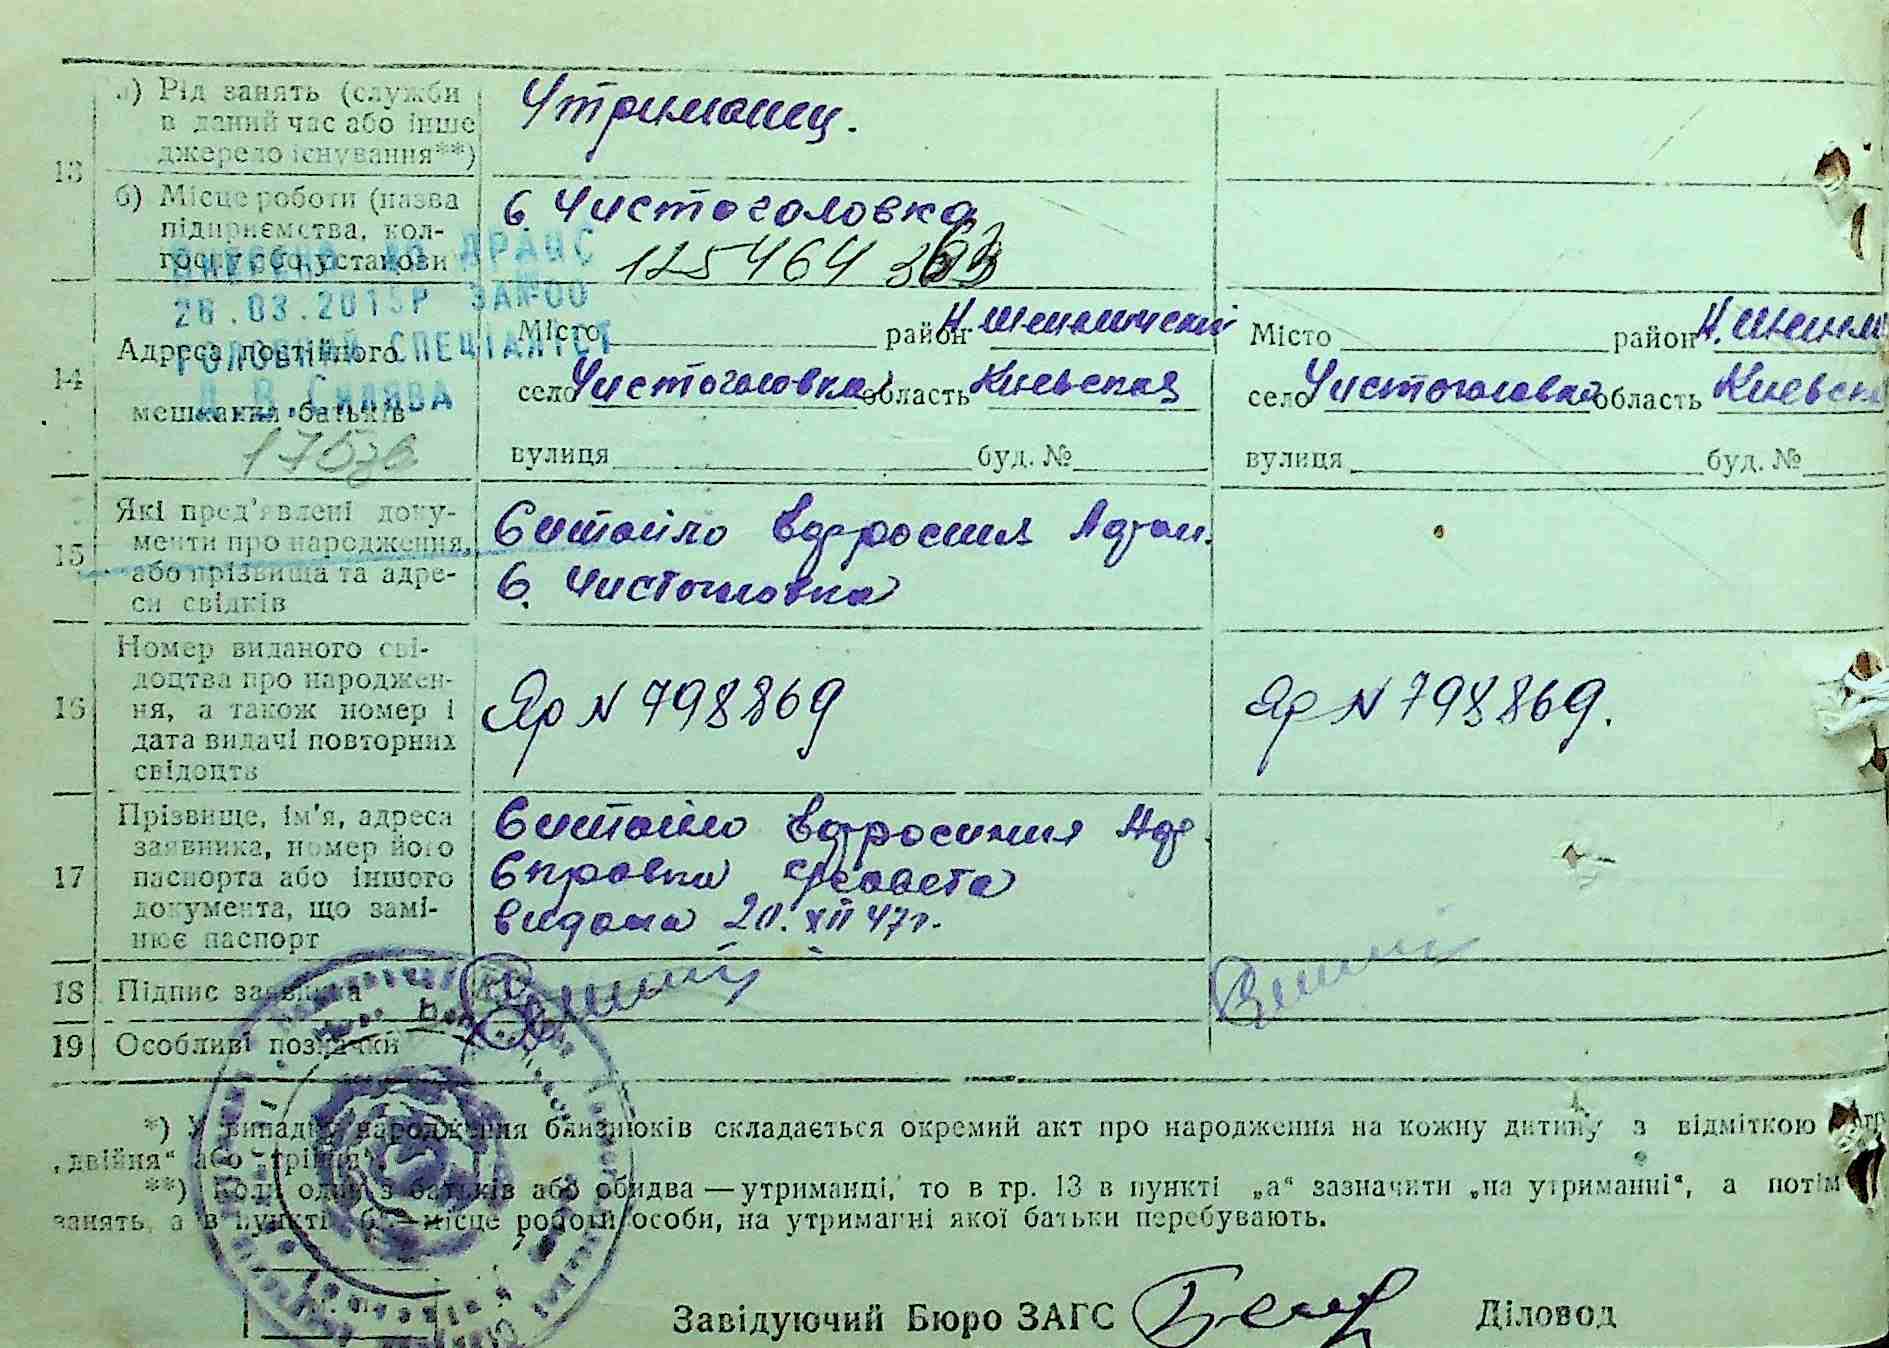 а) Рід занять (служби
в даний час або інше
джерело існування**)
Утриманец.
13
б) Місце роботи (назва
підприємства, кол-
госпу або установи
с. Чистоголовка
125464
ВНЕСЕНО ДО ДРАЦС
26.03.2015р ЗА№00
ГОЛОВНИЙ СПЕЦІАЛІСТ
14
Адреса постійного
мешкання батьків
Місто район
село Чистоголовка область Киевская
вулиця буд. №
Місто район
село Чистоголовка область
вулиця буд. №
15
Які пред'явлені доку-
менти про народження,
або прізвища та адре-
си свідків
с. Чистоголовка
16
Номер виданого сві-
доцтва про народжен-
ня, а також номер і
дата видачі повторних
свідоцтв
Яр N 798869
Яр N 798869.
17
Прізвище, ім'я, адреса
заявника, номер його
паспорта або іншого
документа, що замі-
нює паспорт
Справка с/совета
видана 20. XII 47 г.
18 Підпис заявника
19 Особливі позначки
*) У випадку народження близнюків складається окремий акт про народження на кожну дитину з відміткою
„двійня“ або „трійня“.
**) Коли один з батьків або обидва — утриманці, то в гр. 13 в пункті „а“ зазначити „на утриманні“, а потім
занять, а в пункті „б“ — місце роботи особи, на утриманні якої батьки перебувають.
Завідуючий Бюро ЗАГС Діловод